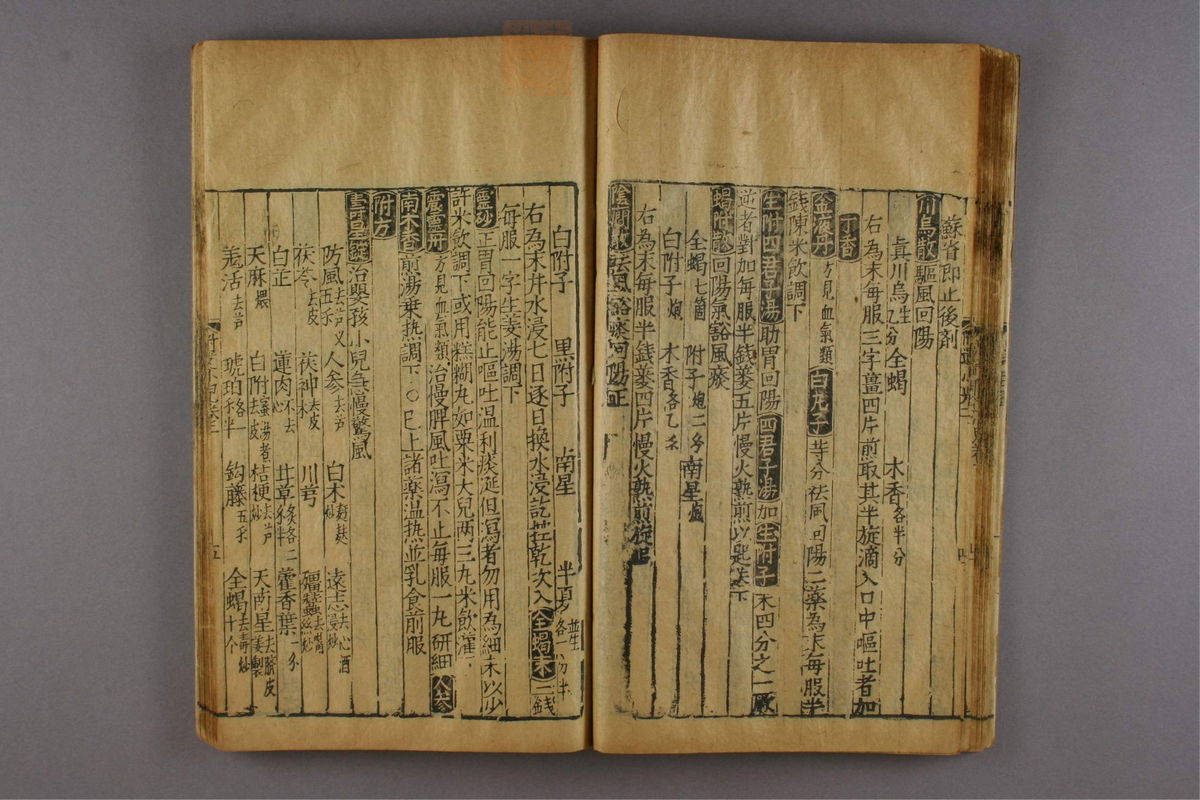 蘇省即止後劑
川烏散驅風回陽
真川烏生九分 全蝎 木香各半分
右為末每服三字薑四片煎取其半旋滴入口中嘔吐者加
丁香
金液丹方見血氣類 白丸子等分祛風回陽二藥為末每服半
錢陳米飲調下
生附四君子湯助胃回陽四君子湯加生附子末四分之一厥
逆者對加每服半錢薑五片慢火熟煎以匙送下
蝎附散回陽氣豁風痰
全蝎七箇 附子炮二分 南星炮
白附子炮 木香各乙分
右為末每服半錢薑四片慢火熟煎旋服
陰癇散祛風豁痰回陽正
白附子 黑附子 南星 半夏並生各一分半
右為末井水浸七日逐日換水浸訖控乾次入全蝎末二錢
每服一字生薑湯調下
靈砂正胃回陽能止嘔吐温利痰延但瀉者勿用為細末以少
許米飲調下或用糕糊丸如粟米大兒兩三九米飲灌
震靈丹方見血氣類治慢脾風吐瀉不止每服一丸研細人參
南木香煎湯乗热調下○巳上諸藥温热並乳食前服
附方
治嬰孩小兒急慢驚風
防風去芦乂 人參去芦 白术麩炒 遠志去心酒
茯苓去皮 茯神去木 川芎
白芷 蓮肉不去心 甘草炙各二 藿香葉一分
天麻煨 白附 桔梗去芦炒 天南星
羌活去芦 琥珀 鈎藤五分 全蝎去毒炒十个
五